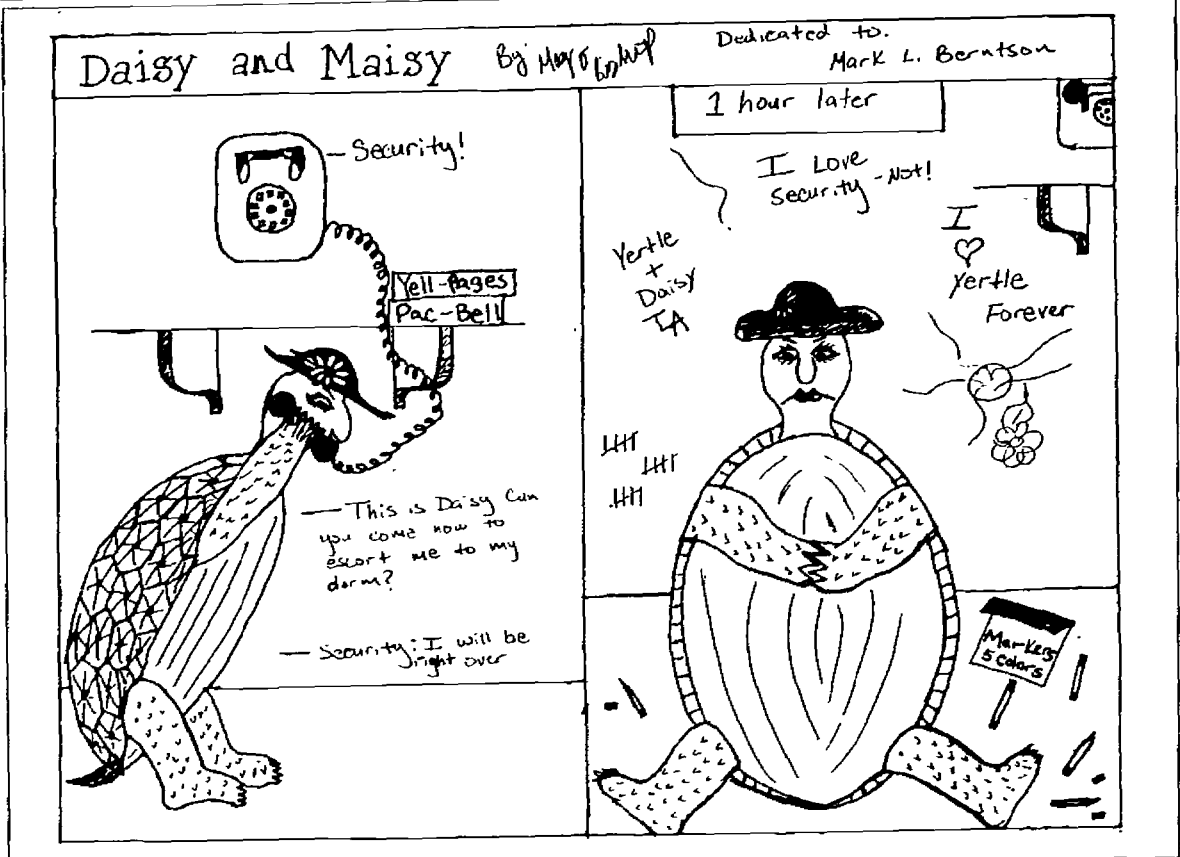 Daisy and Maisy
By
Dedicated to.
Mark L. Berntson
Security!
Yell-Pages
Pac-Bell
This is Daisy Can
you come now to
escort me to my
dorm?
Security: I will be
right over
1 hour later
I Love
Security - Not!
Yertle
+
Daisy
I
♡
Yertle
Forever
Markers
5 colors